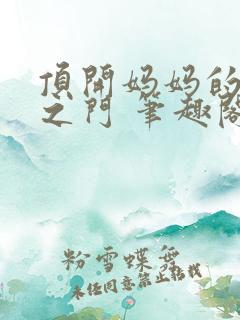 頂開妈妈的
之门 筆趣阁
粉雪蝶舞
未经同意禁止转载